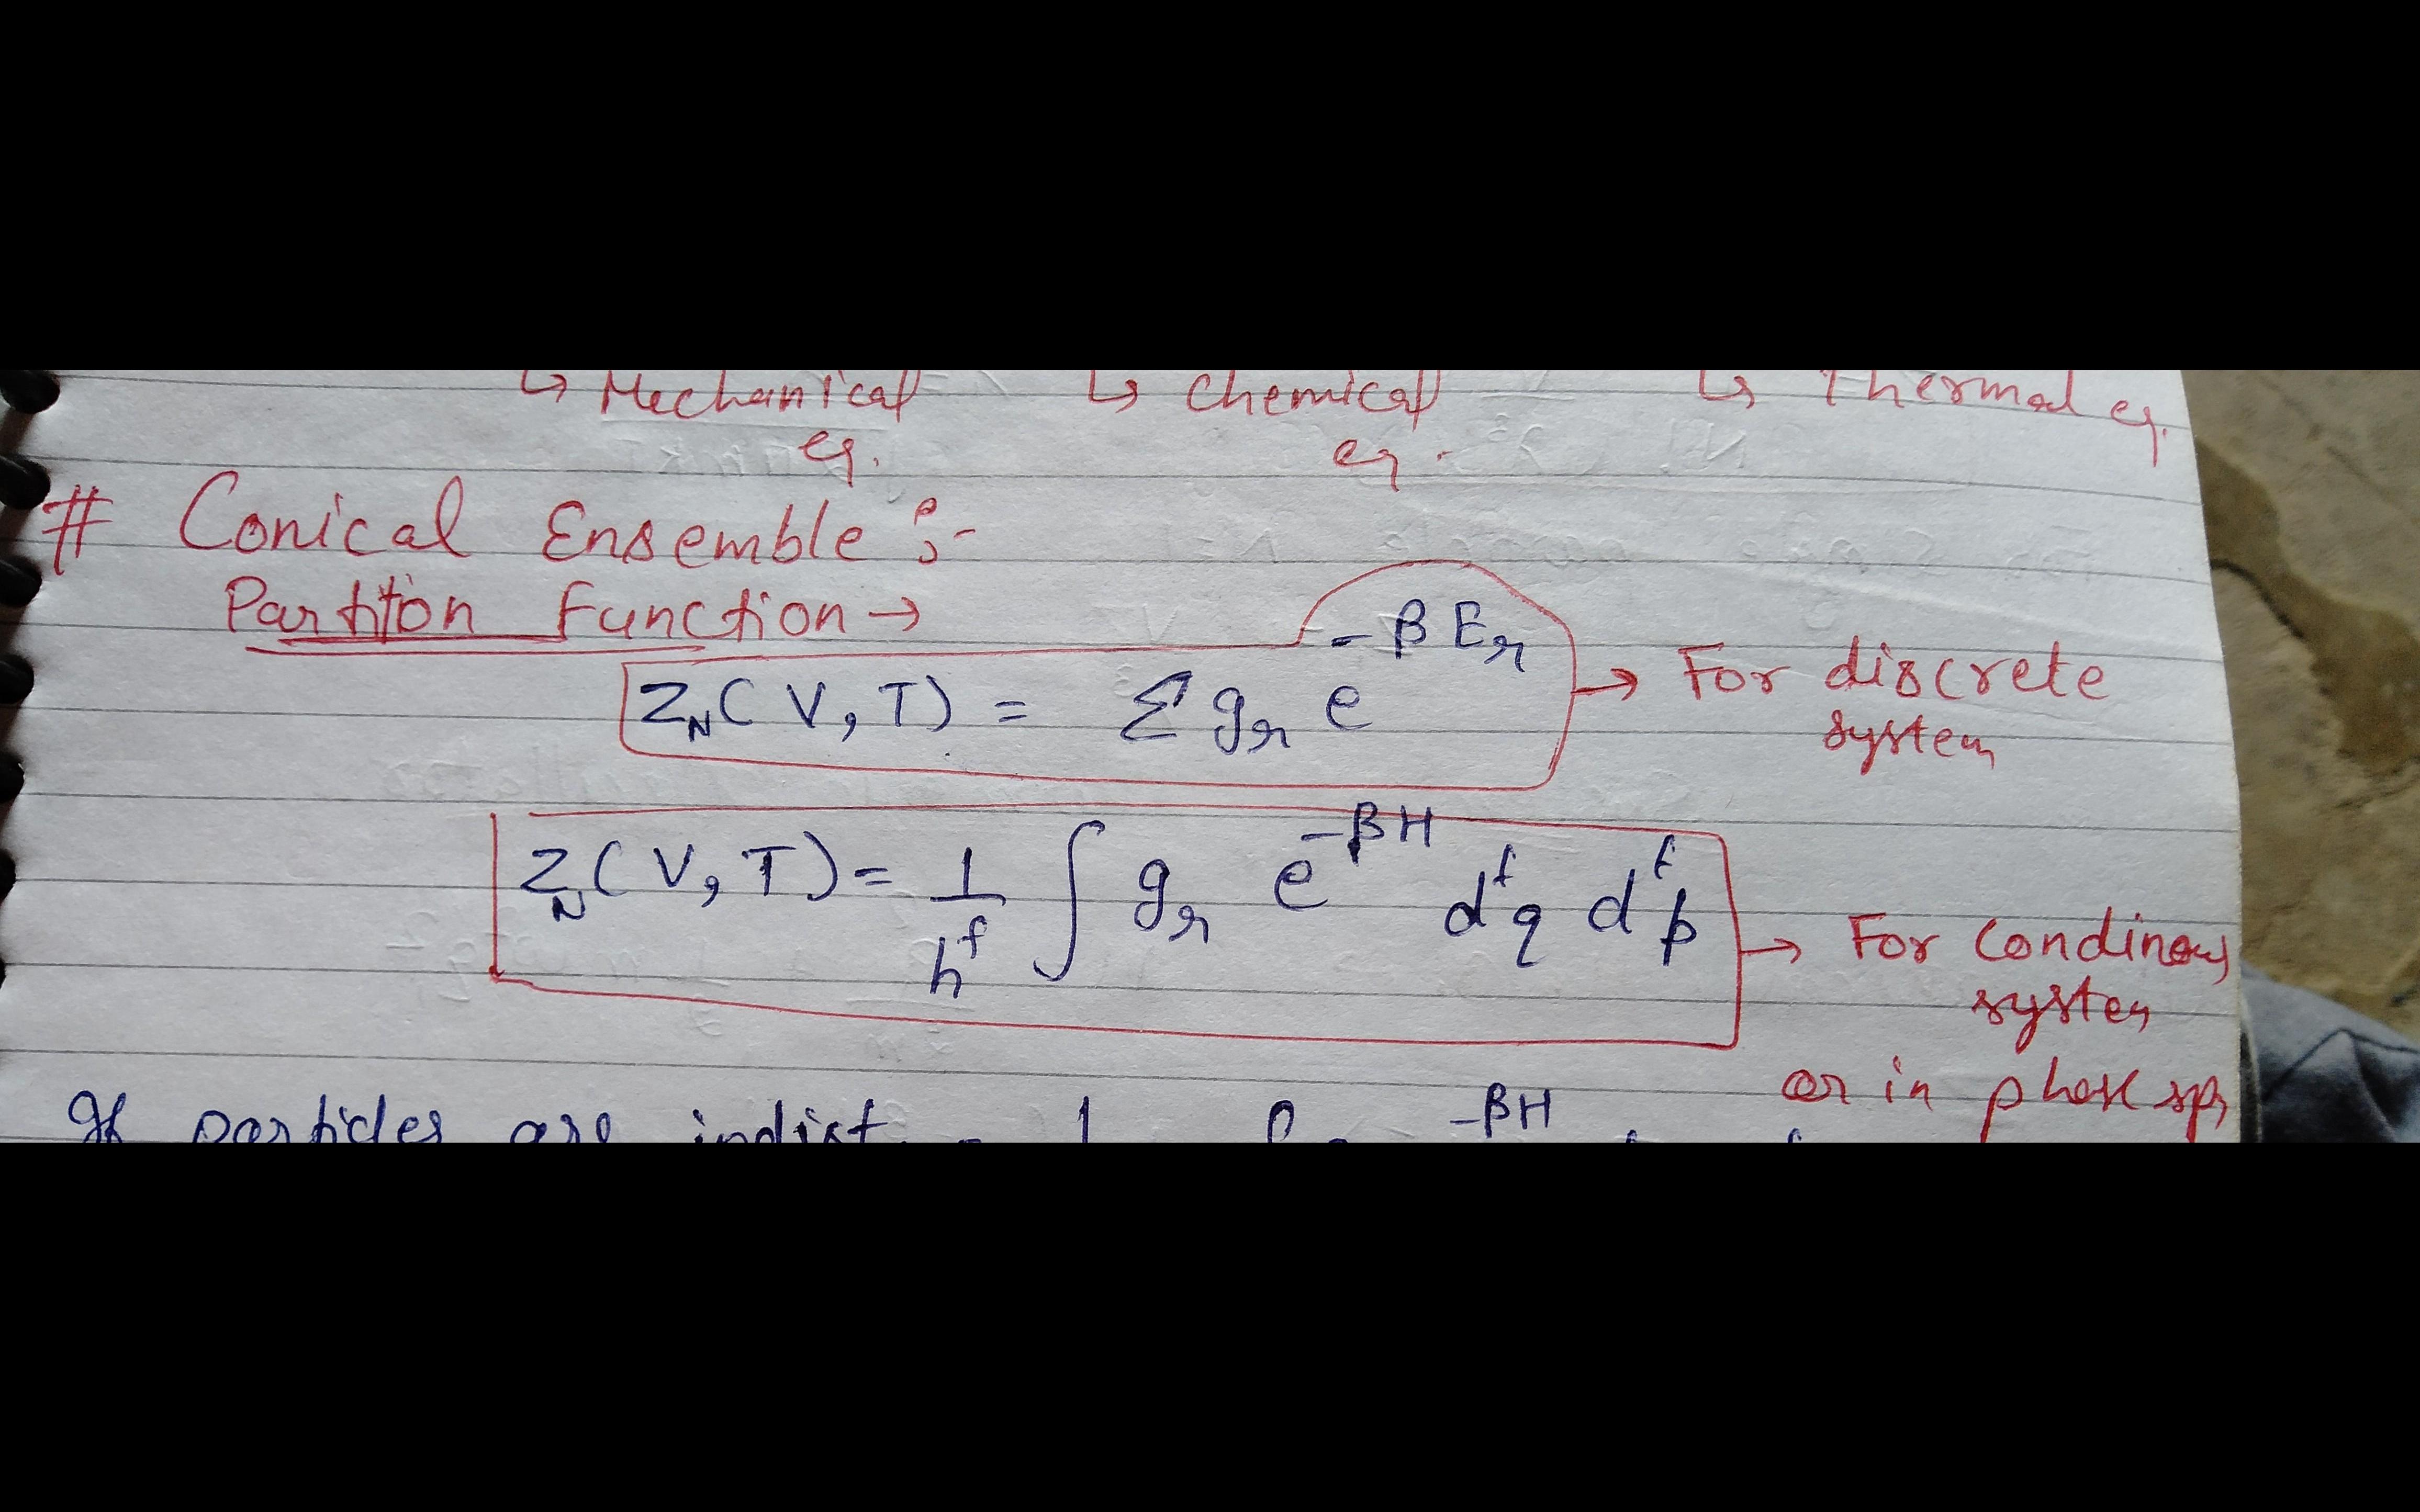 ↳ Mechanical eq. ↳ Chemical eq. ↳ Thermal eq.
# Conical Ensemble :-
Partition Function →
Z_N(V, T) = Σ g_r e^{-βE_r} → For discrete system
Z_N(V, T) = 1/h^f ∫ g_r e^{-βH} d^f q d^f p → For Condinous system
or in phase sp
If particles are indist. -βH